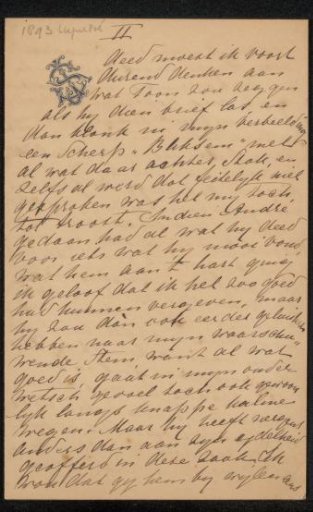 1893
II
deed moest ik voort
durend denken aan
wat Toon zou zeggen
als hy dien brief las en
dan klonk in myn verbeelding
een scherp "Bliksem" met
al wat daar achter stak, en
zelfs al werd dat feitelyk niet
gesproken was het my toch
tot troost. Indien André
gedaan had al wat hy deed
voor iets wat hy mooi vond,
wat hem aan 't hart ging
ik geloof dat ik het zoo goed
had kunnen vergeven, maar
hy zou dan ook eerder geluisterd
hebben naar myn waarschu
wende stem want al wat
goed is, gaat in myn ouder
wetsch gevoel toch ook gewoon
lyk langs knappe kalme
wegen. Maar hy heeft nergens
anders dan aan zyn ydelheid
geofferd in deze zaak. Ik
wou dat gy hem by wylen eens